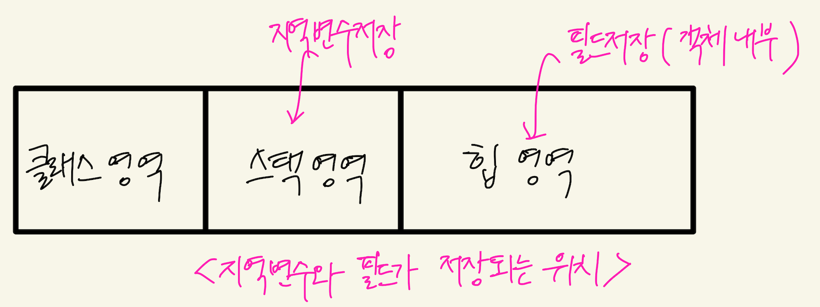 지역변수저장
필드저장(객체 내부)
클래스 영역
스택 영역
힙 영역
<지역변수와 필드가 저장되는 위치>